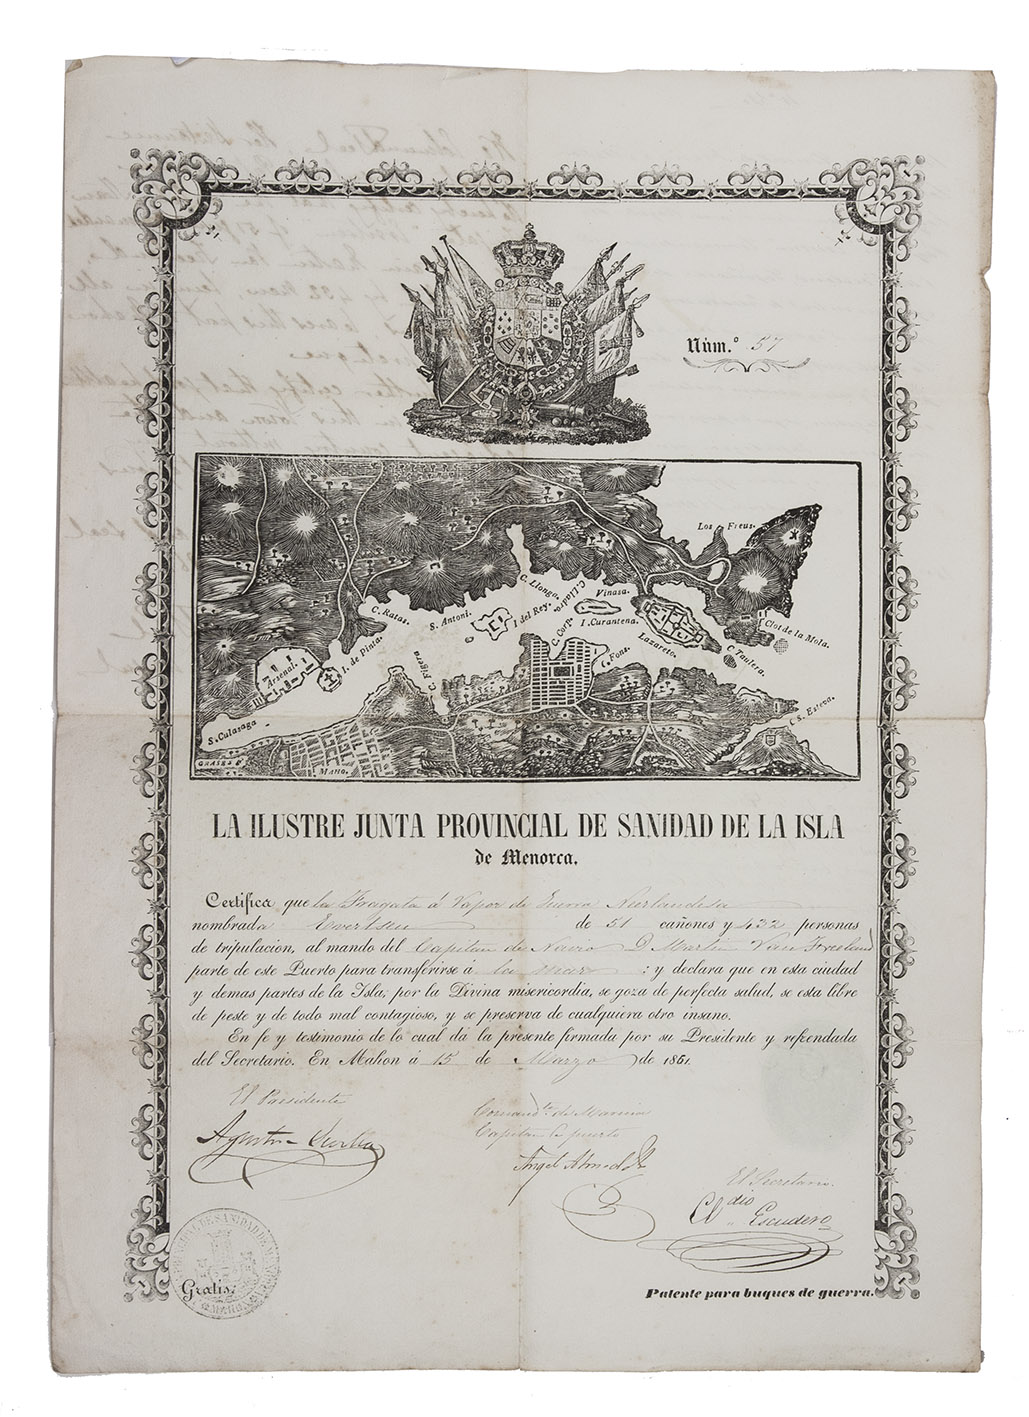 Núm.º 57
Los Freus.
C. Ratas.
S. Antoni.
I del Rey.
C. Llonga.
C. Lladro.
Vinasa.
I. Curantena.
Clot de la Mola.
C Taulera.
Lazareto.
C. Fons.
C. Corp.
C. Figera
I. de Pinta.
Arsenal.
S. Culasaga
C S. Esteva.
MAHO.
LA ILUSTRE JUNTA PROVINCIAL DE SANIDAD DE LA ISLA
de Menorca.
Certifica que la Fragata á Vapor de Guerra Neerlandesa
nombrada Evertsen de 51 cañones y 432 personas
de tripulacion, al mando del Capitan de Navio D Martin Van
parte de este Puerto para transferirse á la mar : y declara que en esta ciudad
y demas partes de la Isla, por la Divina misericordia, se goza de perfecta salud, se esta libre
de peste y de todo mal contagioso, y se preserva de cualquiera otro insano.
En fe y testimonio de lo cual da la presente firmada por su Presidente y refrendada
del Secretario. En Mahon á 15 de Marzo de 1861.
El Presidente
Comandte. de Marina
Capitan de puerto
Angel
El Secretario.
Cldio Escudero
Gratis.
Patente para buques de guerra.